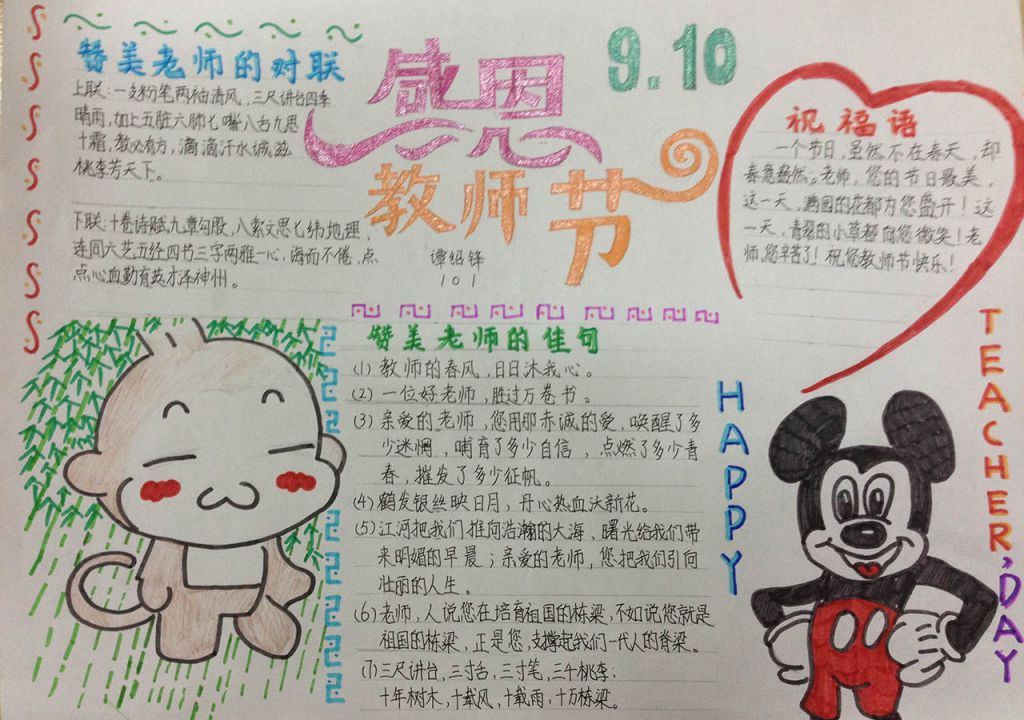 赞美老师的对联
上联:一支粉笔两袖清风,三尺讲台四季
晴雨,加上五脏六肺七嘴八舌九思
十霜,教必有方,滴滴汗水诚滋
桃李芳天下。
下联:十卷诗赋九章勾股,八索文思七纬地理,
连同六艺五经四节三字两雅一心,诲而不倦,点
点心血勤育英才泽神州。
感恩
教师节
谭绍锋
101
9.10
祝福语
一个节日,虽然不在春天,却
春意盎然。老师,您的节日最美,
这一天,满园的花都为您盛开!这
一天,青翠的小草都向您微笑!老
师,您辛苦了!祝您教师节快乐!
赞美老师的佳句
(1) 教师的春风,日日沐我心。
(2) 一位好老师,胜过万卷书。
(3) 亲爱的老师,您用那赤诚的爱,唤醒了多
少迷惘,哺育了多少自信,点燃了多少青
春,摧发了多少征帆。
(4) 鹤发银丝映日月,丹心热血沃新花。
(5) 江河把我们推向浩瀚的大海,曙光给我们带
来明媚的早晨;亲爱的老师,您把我们引向
壮丽的人生。
(6) 老师,人说您在培育祖国的栋梁,不如说您就是
祖国的栋梁,正是您,支撑起我们一代人的脊梁。
(7) 三尺讲台,三寸舌,三寸笔,三千桃李;
十年树木,十载风,十载雨,十万栋梁。
HAPPY
TEACHER,DAY